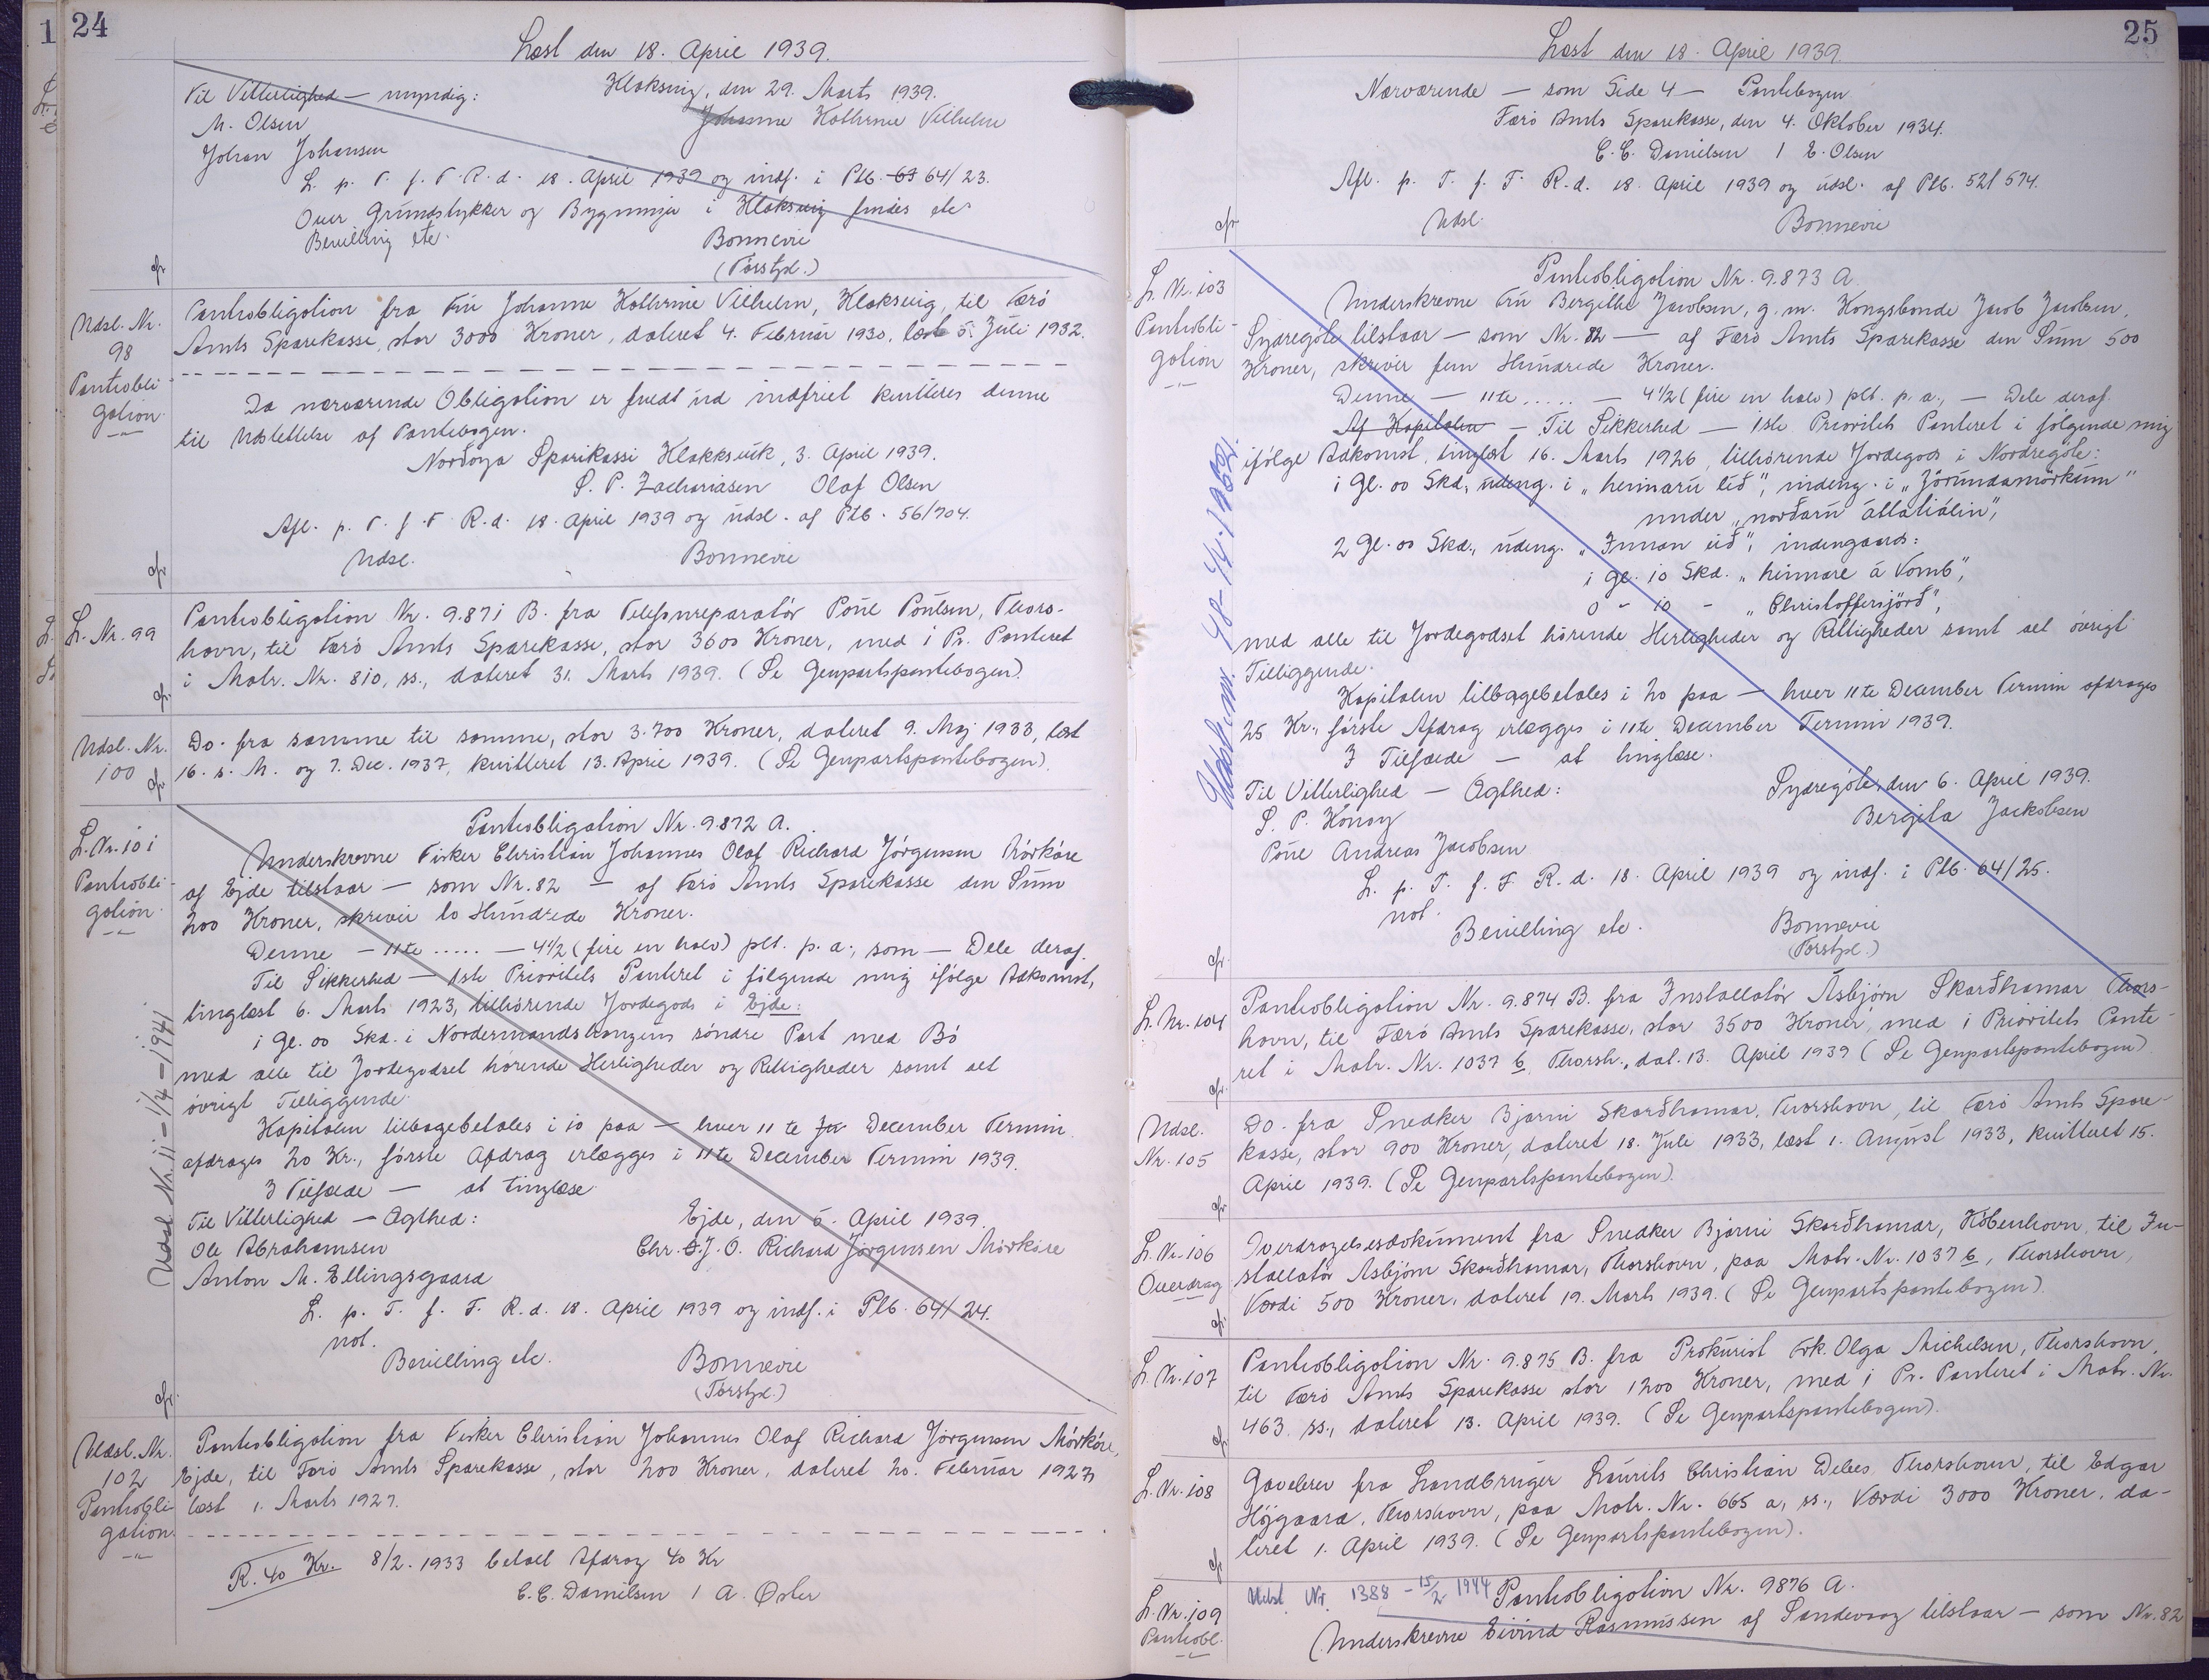 24
Læst den 18. April 1939.
Til Vitterlighed — myndig: Klaksvig, den 29. Marts 1939.
M. Olsen Johanne Kathrine Vilhelm
Johan Johansen
L. p. T. f. F. R. d. 18. April 1939 og indf. i Ptb. 63 64/23.
Over Grundstykker og Bygninger i Klaksvig findes etc
Bevilling etc. Bonnevie
(Torshl.)
Udsl. Nr. 98
Pantobligation
Pantobligation fra Fru Johanne Kathrine Vilhelm, Klaksvig, til Færø
Amts Sparekasse, stor 3000 Kroner, dateret 4. Februar 1930, læst 5. Juli 1932.
Da nærværende Obligation er fuldt ud indfriet kvitteres denne
til Udslettelse af Pantebogen.
Norðoya Sparikassi Klakksvik, 3. April 1939.
S. P. Zachariasen Olaf Olsen
Afl. p. T. f. F. R. d. 18. April 1939 og udsl. af Ptb. 56/704.
Udsl. Bonnevie
L. Nr. 99
Pantobligation Nr. 9.871 B. fra Telefonreparatör Poul Poulsen, Thors-
havn, til Færö Amts Sparekasse, stor 3600 Kroner, med 1 Pr. Panteret
i Matr. Nr. 810, ss., dateret 31. Marts 1939. (Se Genpartspantebogen).
Udsl. Nr. 100
Do. fra samme til samme, stor 3.700 Kroner, dateret 9. Maj 1933, læst
16. s. M. og 7. Dec. 1937, kvitteret 13. April 1939. (Se Genpartspantebogen).
L. Nr. 101
Pantobligation
Pantobligation Nr. 9.872 A.
Underskrevne Fisker Christian Johannes Olaf Richard Jörgensen Mörköre
af Ejde tilstaar — som Nr. 82 — af Færö Amts Sparekasse den Sum
200 Kroner, skriver to Hundrede Kroner.
Denne — 11te ..... — 4 1/2 (fire en halv) pCt. p. a., som — Dele deraf.
Til Sikkerhed — 1ste Prioritets Panteret i følgende mig ifølge Adkomst,
tinglæst 6. Marts 1923, tilhørende Jordegods i Ejde:
1 Gl. 00 Skd. i Nordermandshaugens söndre Part med Bö
med alle til Jordegodset hörende Herligheder og Rettigheder samt alt
övrigt Tilliggende.
Kapitalen tilbagebetales i 10 paa — hver 11te Ju December Termin
afdrages 20 Kr., første Afdrag erlægges i 11te December Termin 1939.
I Tilfælde — at tinglæse.
Til Vitterlighed — Ægthed: Ejde, den 5. April 1939.
Ole Abrahamsen Chr. J. O. Richard Jørgensen Mörköre
Anton M. Ellingsgaard
L. p. T. f. F. R. d. 18. April 1939 og indf. i Ptb. 64/24.
not.
Bevilling etc. Bonnevie
(Torshl.)
Udsl. Nr. 11 - 1/4 - 1941
Udsl. Nr. 102
Pantobligation
Pantobligation fra Fisker Christian Johannes Olaf Richard Jörgensen Mörköre,
Ejde, til Færö Amts Sparekasse, stor 200 Kroner, dateret 20. Februar 1927,
læst 1. Marts 1927.
R. 40 Kr. 8/2. 1933 betalt Afdrag 40 Kr
C. C. Danielsen / A. Øster
25
Læst den 18. April 1939.
Nærværende — som Side 4 — Pantebogen
Færö Amts Sparekasse, den 4. Oktober 1934.
C. C. Danielsen / E. Olsen
Afl. p. T. f. F. R. d. 18. April 1939 og udsl. af Ptb. 52/574.
Udsl. Bonnevie
L. Nr. 103
Pantobligation
Pantobligation Nr. 9.873 A.
Underskrevne Fru Bergitte Jacobsen, g. m. Kongsbonde Jacob Jacobsen,
Sydregöte tilstaar — som Nr. 82 — af Færö Amts Sparekasse den Sum 500
Kroner, skriver fem Hundrede Kroner.
Denne — 11te ..... — 4 1/2 (fire en halv) pCt. p. a., — Dele deraf.
Af Kapitalen — Til Sikkerhed — 1ste Prioritets Panteret i følgende mig
ifølge Adkomst, tinglæst 16. Marts 1926, tilhörende Jordegods i Nordregöte:
1 Gl. 00 Skd., udeng. i „heimaru líð", indeng. i „Jörundamörkum"
under „norðaru
2 Gl. 00 Skd., udeng. „Innan eið", indengaards:
1 Gl. 10 Skd. „heimare á Vomb",
0 - 10 - „Christoffersjörð",
med alle til Jordegodset hörende Herligheder og Rettigheder samt alt övrigt
Tilliggende.
Kapitalen tilbagebetales i 20 paa — hver 11te December Termin afdrages
25 Kr., første Afdrag erlægges i 11te December Termin 1939.
I Tilfælde — at tinglæse.
Til Vitterlighed — Ægthed: Sydregöte, den 6. April 1939.
S. P. Konoy Bergita Jackobsen
Poul Andreas Jacobsen
L. p. T. f. F. R. d. 18. April 1939 og indf. i Ptb. 64/25.
not.
Bevilling etc. Bonnevie
(Torshl.)
L. Nr. 104
Pantobligation Nr. 9.874 B. fra Installatör Åsbjörn Skarðhamar Thors-
havn, til Færö Amts Sparekasse, stor 3500 Kroner, med 1 Prioritets Pante-
ret i Matr. Nr. 1037 b Thorsh., dat. 13. April 1939 (Se Genpartspantebogen).
Udsl. Nr. 105
Do. fra Snedker Bjarni Skarðhamar, Thorshavn, til Færö Amts Spare-
kasse, stor 900 Kroner, dateret 18. Juli 1933, læst 1. August 1933, kvitteret 15.
April 1939. (Se Genpartspantebogen).
L. Nr. 106
Overdrag
Overdragelsesdokument fra Snedker Bjarni Skarðhamar, Köbenhavn, til In-
stallatör Asbjörn Skarðhamar, Thorshavn, paa Matr. Nr. 1037 b, Thorshavn,
Værdi 500 Kroner, dateret 19. Marts 1939. (Se Genpartspantebogen).
L. Nr. 107
Pantobligation Nr. 9.875 B. fra Prokurist Frk. Olga Michelsen, Thorshavn,
til Færö Amts Sparekasse stor 1200 Kroner, med 1 Pr. Panteret i Matr. Nr.
463 ss., dateret 13. April 1939. (Se Genpartspantebogen).
L. Nr. 108
Gavebrev fra Landbruger Laurits Christian Debes Thorshavn, til Edgar
Höjgaard, Thorshavn, paa Matr. Nr. 665 a, ss., Værdi 3000 Kroner, da-
teret 1. April 1939. (Se Genpartspantebogen).
L. Nr. 109
Pantobl.
Udsl. Nr. 1388 - 15/2 1944 Pantobligation Nr. 9876 A.
Underskrevne Eivind Rasmussen af Sandevaag tilstaar — som Nr. 82